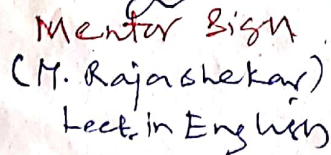 Mentor Sign
(M. Rajashekar)
Lect. in English